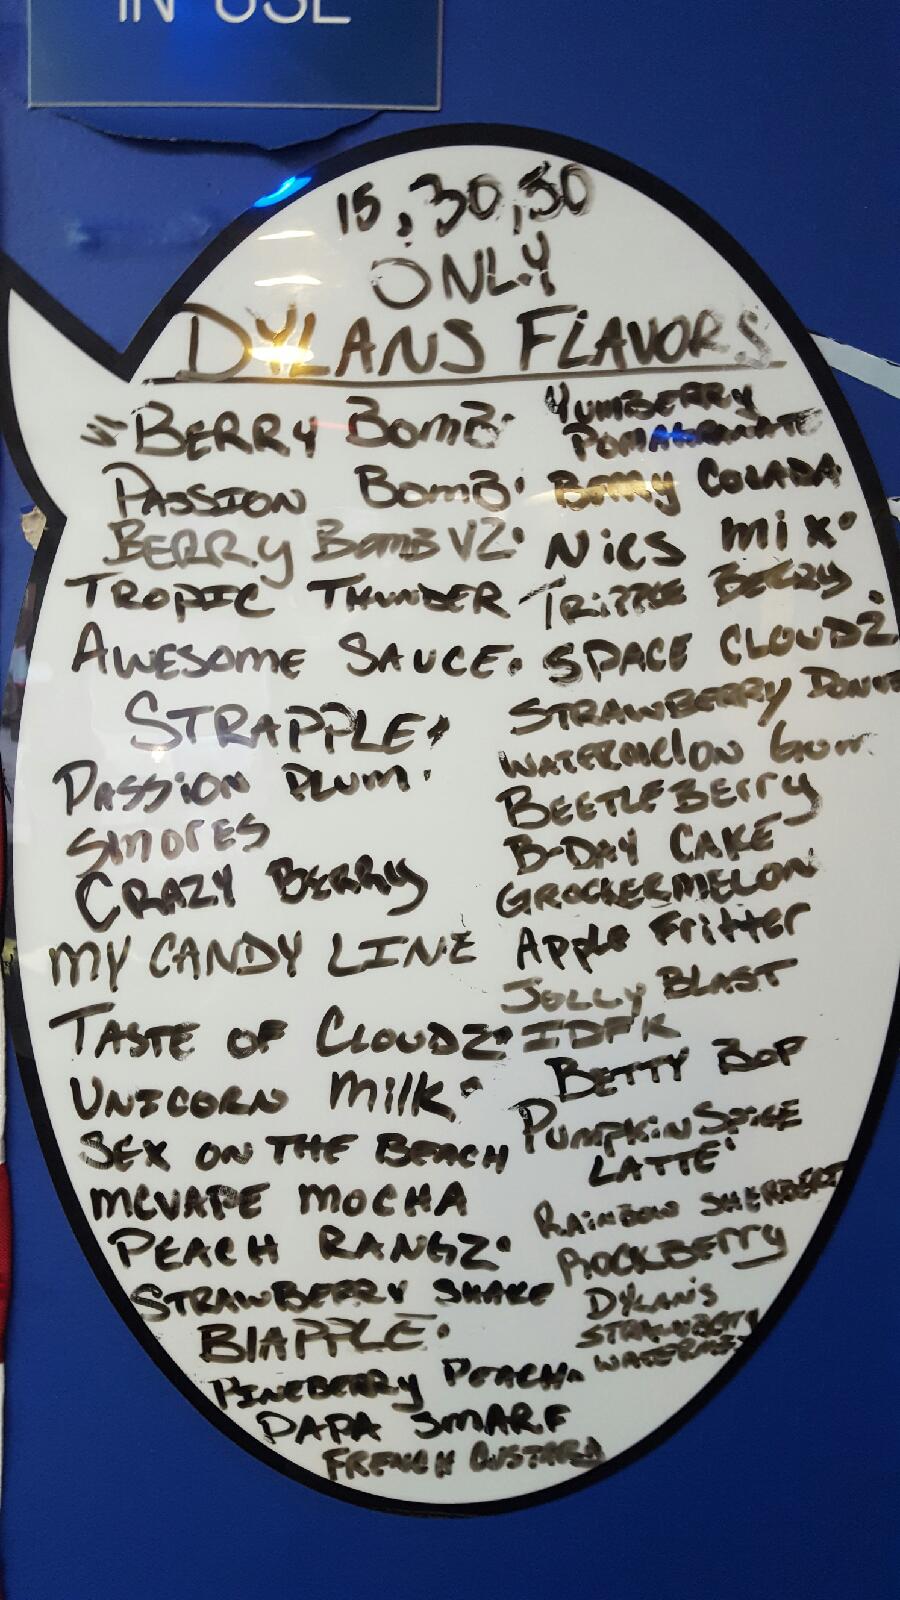 IN USE
15, 30, 50
ONLY
DYLANS FLAVORS
BERRY BOMB
PASSION BOMB
BERRY BOMB V2
TROPIC THUNDER
AWESOME SAUCE
STRAPPLE
PASSION PLUM
SMORES
CRAZY BERRY
MY CANDY LINE
TASTE OF CLOUDZ
UNICORN Milk
SEX ON THE BEACH
MCVAPE MOCHA
PEACH RANGZ
STRAWBERRY SHAKE
BIAPPLE
PINEBERRY PEACH
PAPA SMARF
FRENCH CUSTARD
YUMBERRY
POMAGRANATE
COLADA
NICS MIX
TRIPPLE BERRY
SPACE CLOUDZ
STRAWBERRY
WATERMELON GUM
BEETLEBERRY
B-DAY CAKE
GROCKERMELON
Apple Fritter
JOLLY BLAST
IDFK
BETTY BOP
PUMPKIN SPICE
LATTE
RAINBOW SHERBERT
ROCKBERRY
DYLANS
STRAWBERRY